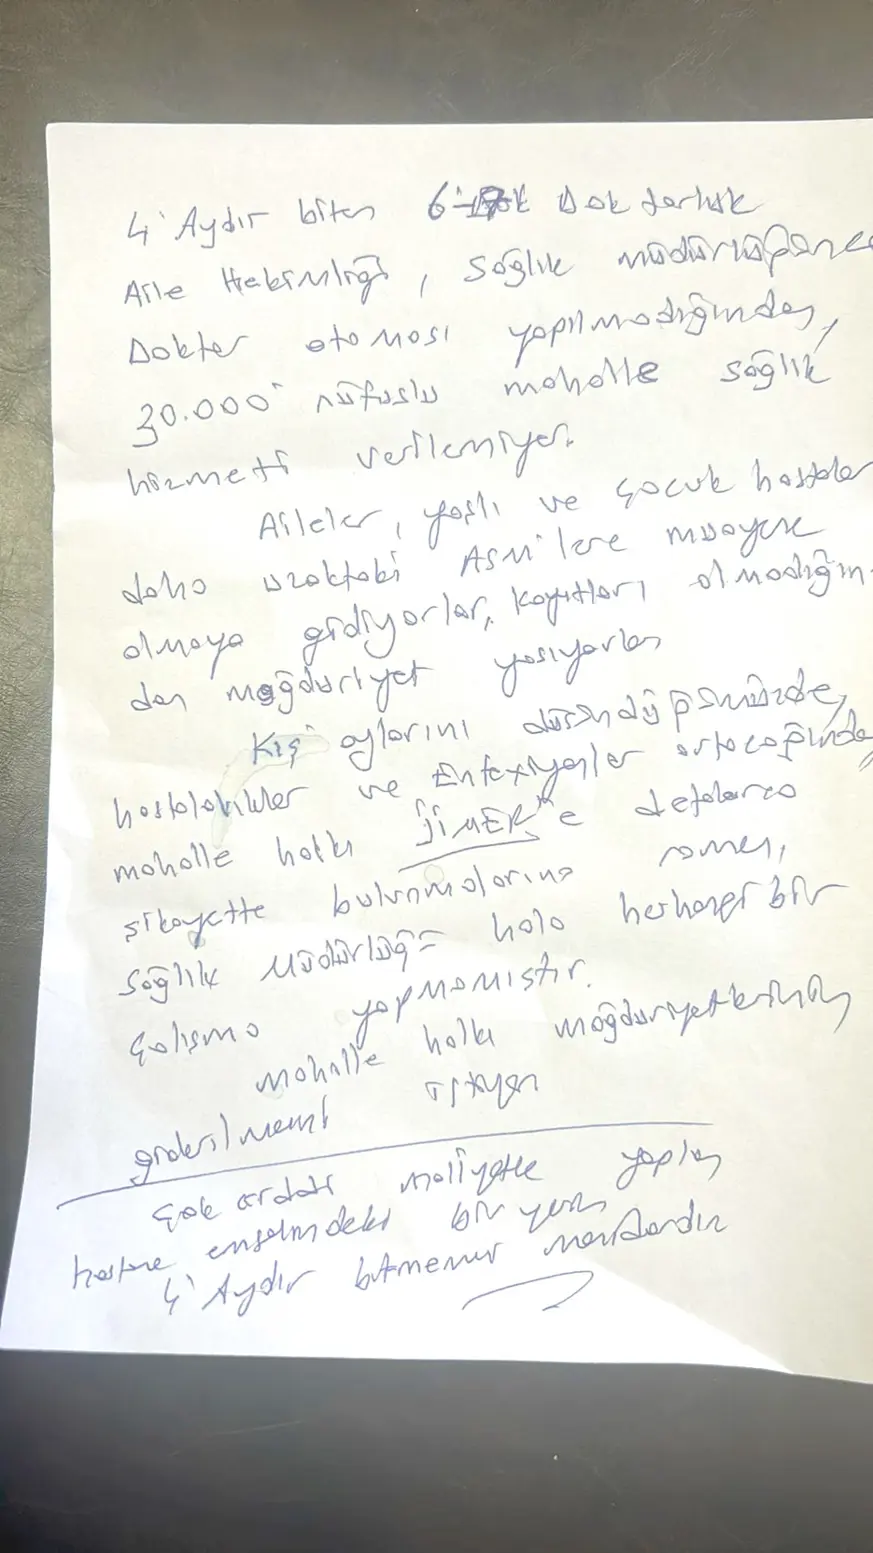 4 Aydır biten 6 Doktorluk
Aile Hekimliği, Sağlık müdürlüğünce
Doktor ataması yapılmadığından,
30.000 nüfuslu mahalle sağlık
hizmeti verilemiyor.
Aileler, yaşlı ve çocuk hastalar
daha uzaktaki ASM'lere muayene
olmaya gidiyorlar, kayıtları olmadığın-
dan mağduriyet yaşıyorlar
Kış aylarını düşündüğümüzde,
hastalıklar ve Enfexiyonlar artacağında
mahalle halkı JİMER'e defalarca
şikayette bulunmalarına ramen,
Sağlık Müdürlüğü hala herhangi bir
Çalışma yapmamıştır.
Mahalle halkı mağduriyetlerinin
giderilmesini istiyor
Çok maliyetle yapılan
hastane bir yerin
4 Aydır